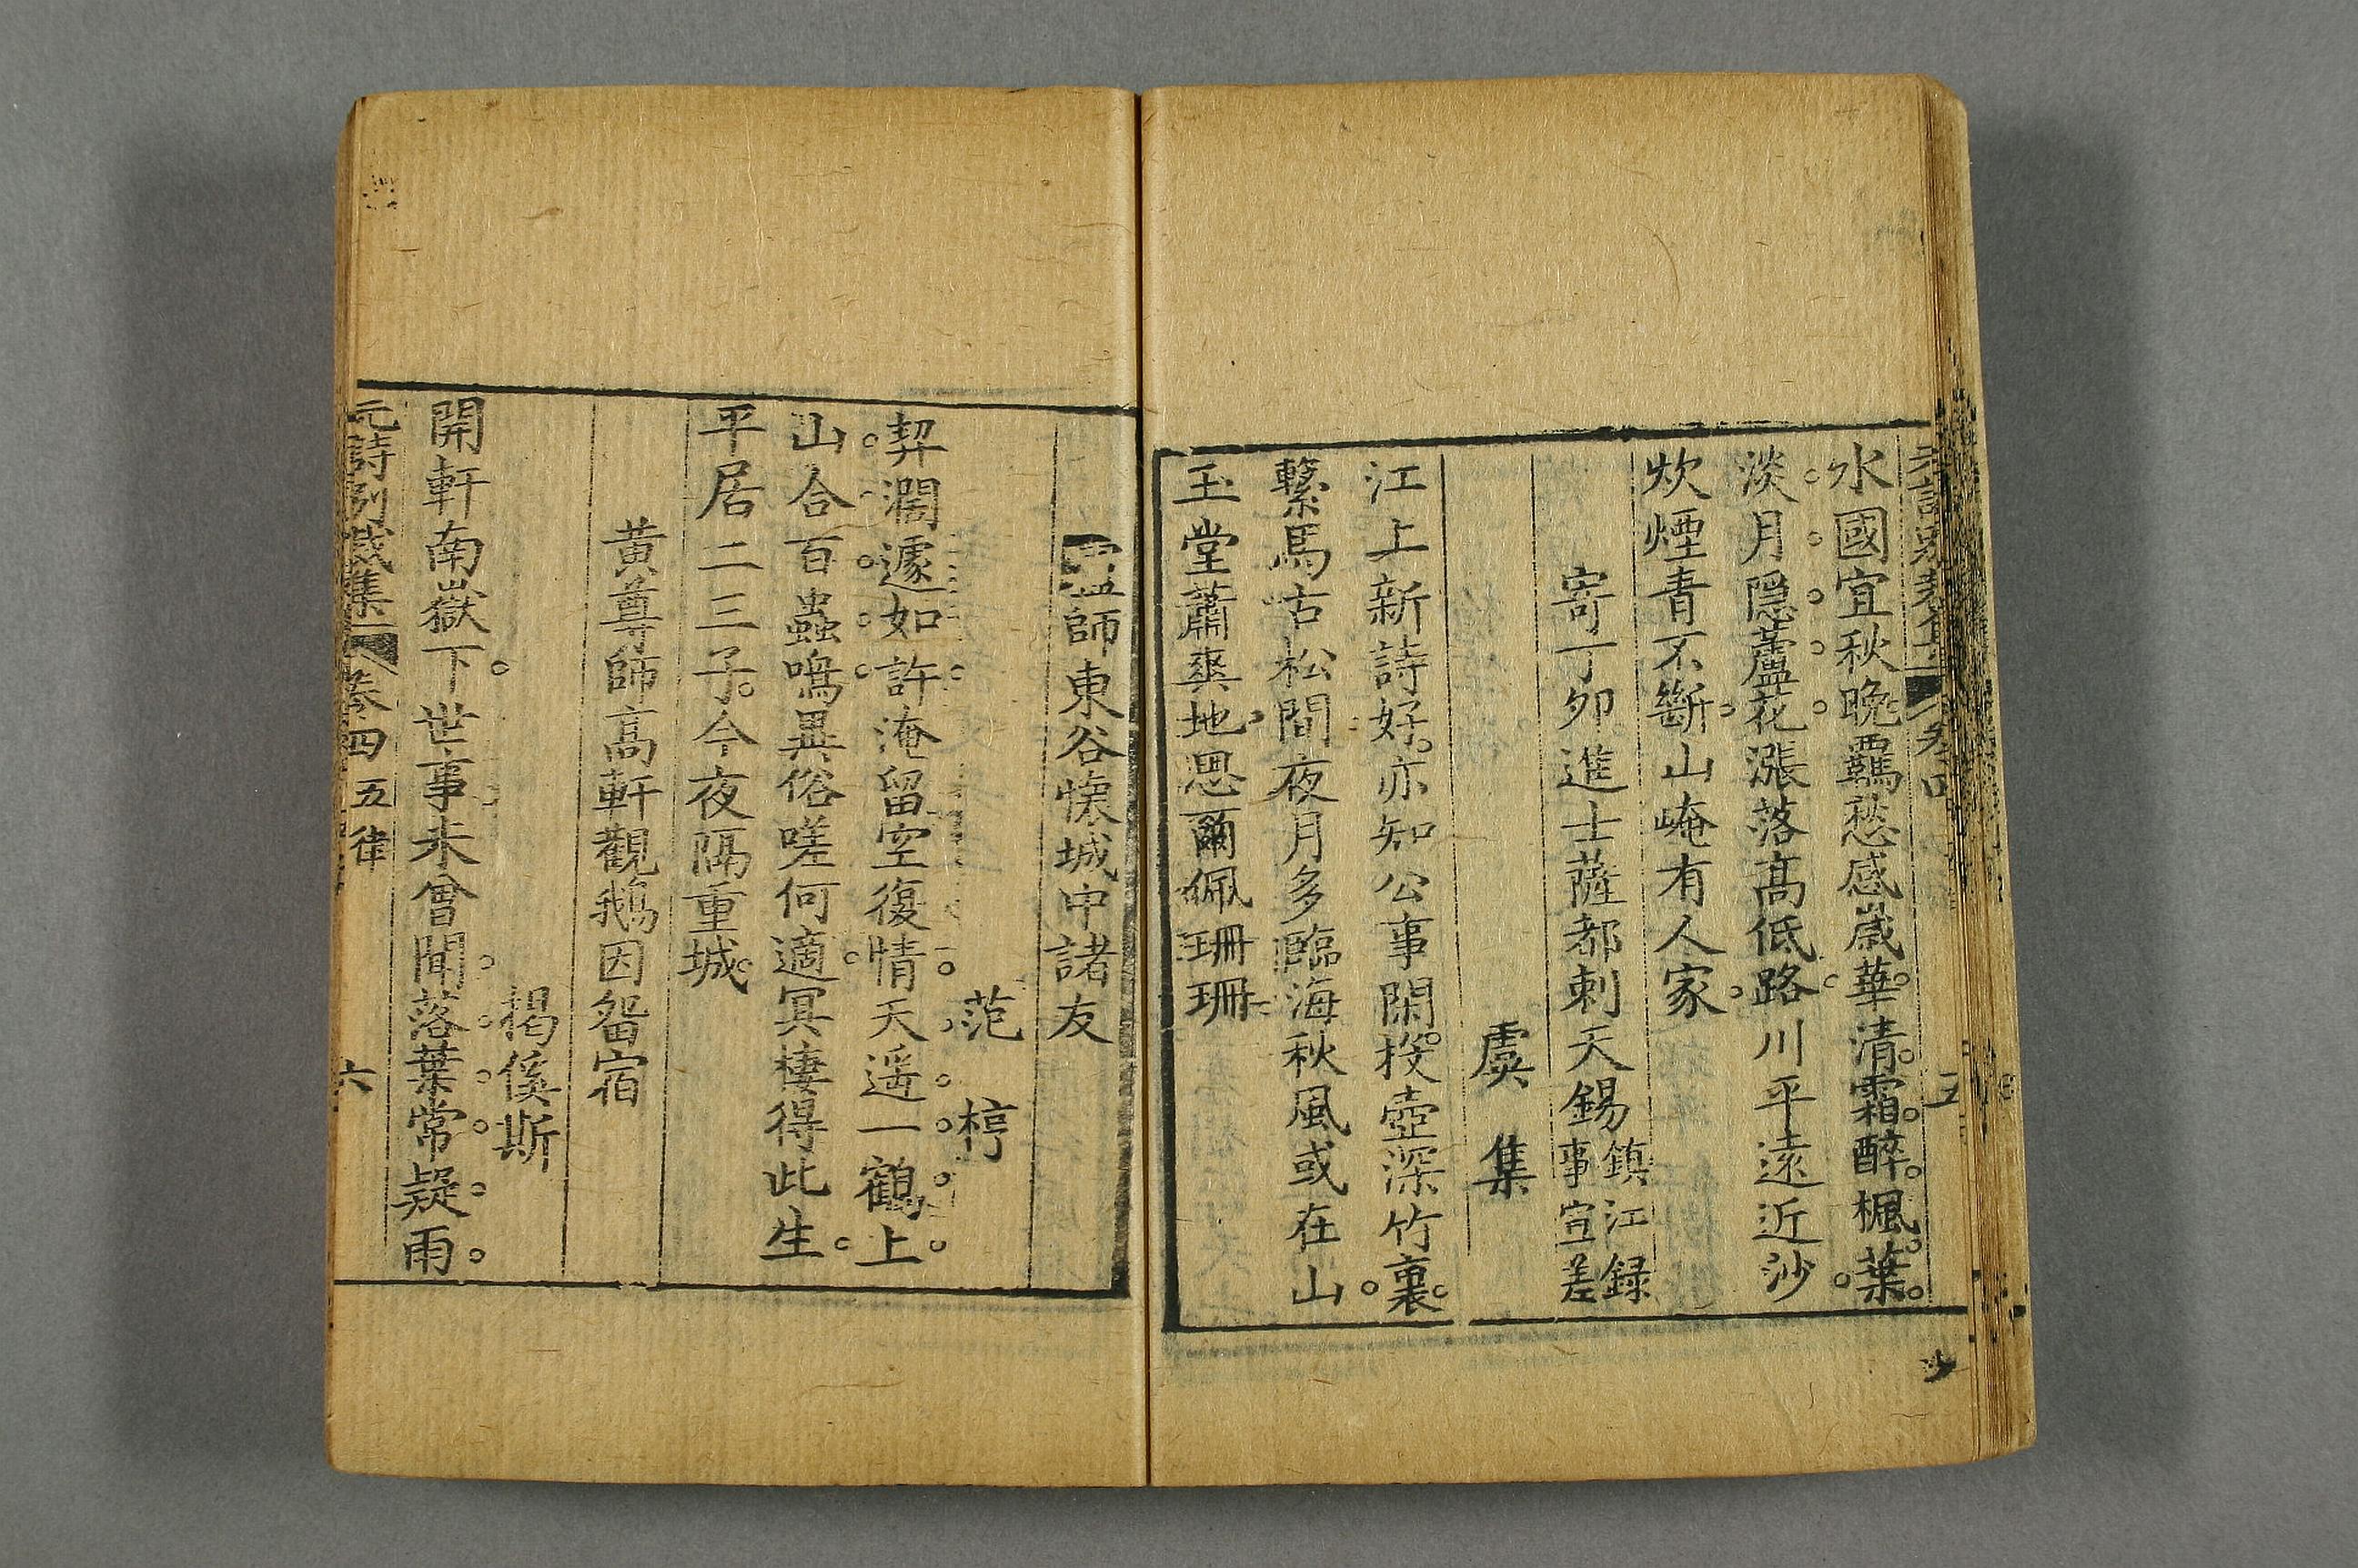 水國宜秋晚羈愁感歲華清霜醉楓葉
淡月隱蘆花漲落高低路川平遠近沙
炊煙青不斷山崦有人家
寄丁卯進士薩都剌天錫鎮江録事宣差
虞集
江上新詩好亦知公事閑投壺深竹裏
繫馬古松間夜月多臨海秋風或在山
玉堂蕭爽地思爾佩珊珊
師東谷懷城中諸友
范梈
契濶遽如許淹留空復情天遥一鶴上
山合百蟲鳴異俗嗟何適冥棲得此生
平居二三子今夜隔重城
黃尊師高軒觀鵝因留宿
揭傒斯
開軒南嶽下世事未曾聞落葉常疑雨
元詩別裁集 卷四 五律 六